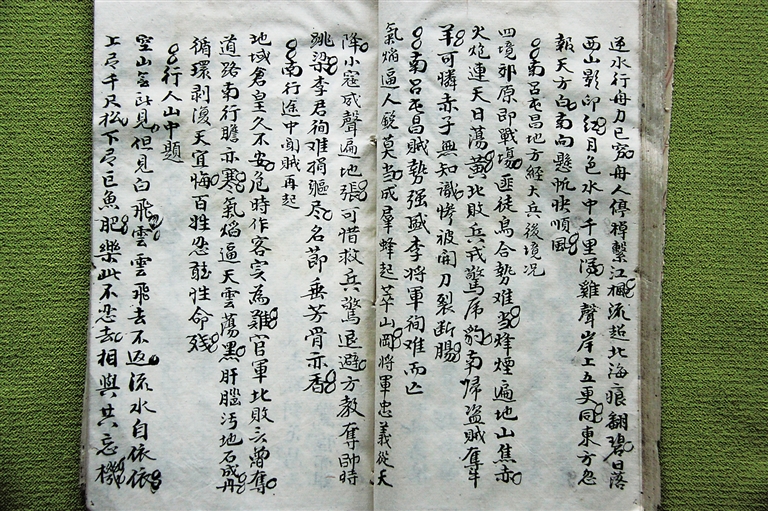 逆水行舟力已窮舟人停棹繫江楓流趨北海痕翻碧日落
西山影印紅月色水中千里滿雞聲岸上五更同東方忽
報天方白南向懸帆快順風
南呂屯昌地方經大兵後境况
四境郊原即戰場匪徒烏合勢难當烽煙遍地山焦赤
火炮連天日蕩黃北敗兵戎驚虎豹南歸盜賊奪牛
羊可憐赤子無知識慘被開刀裂斷腸
南呂屯昌賊勢强盛李將軍徇难而亡
氣焰逼人銳莫当成羣蜂起萃山岡將軍忠義從天
降小寇威聲遍地張可惜救兵驚退避方教奪帥時
跳梁李君徇难捐軀尽名節垂芳骨亦香
南行途中聞賊再起
地域倉皇久不安危時作客实為難官軍北敗云曾奪
道路南行膽亦寒氣焰逼天雲蕩黑肝腦污地石成丹
循環剥復天宜悔百姓忍聴性命殘
行人山中題
空山無所見但見白飛雲雲飛去不返流水自依依
上有千尺松下有巨魚肥樂此不忍去相與共忘機